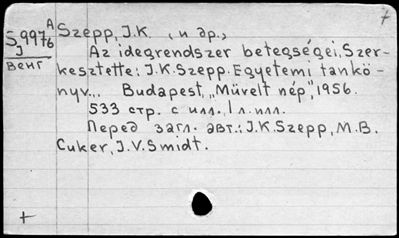 7
S 997 A/76 Szepp, J.K. , и др.,
J
венг
Az idegrendszer betegségei, Szer-
kesztette: J.K. Szepp. Egyetemi tankö-
nyv... Budapest, „Művelt nép", 1956.
533 стр. с илл., 1 л. илл.
Перед загл. авт.: J.K. Szepp, M.B.
Cuker, J.V. Smidt.
+